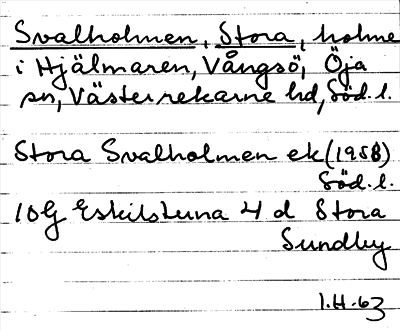 Svalholmen, Stora, holme
i Hjälmaren, Vångsö, Öja
sn, Västerrekarne hd, Söd. l.
Stora Svalholmen ek (1958)
Söd. l.
10G Eskilstuna 4 d Stora
Sundby
I.H.-63